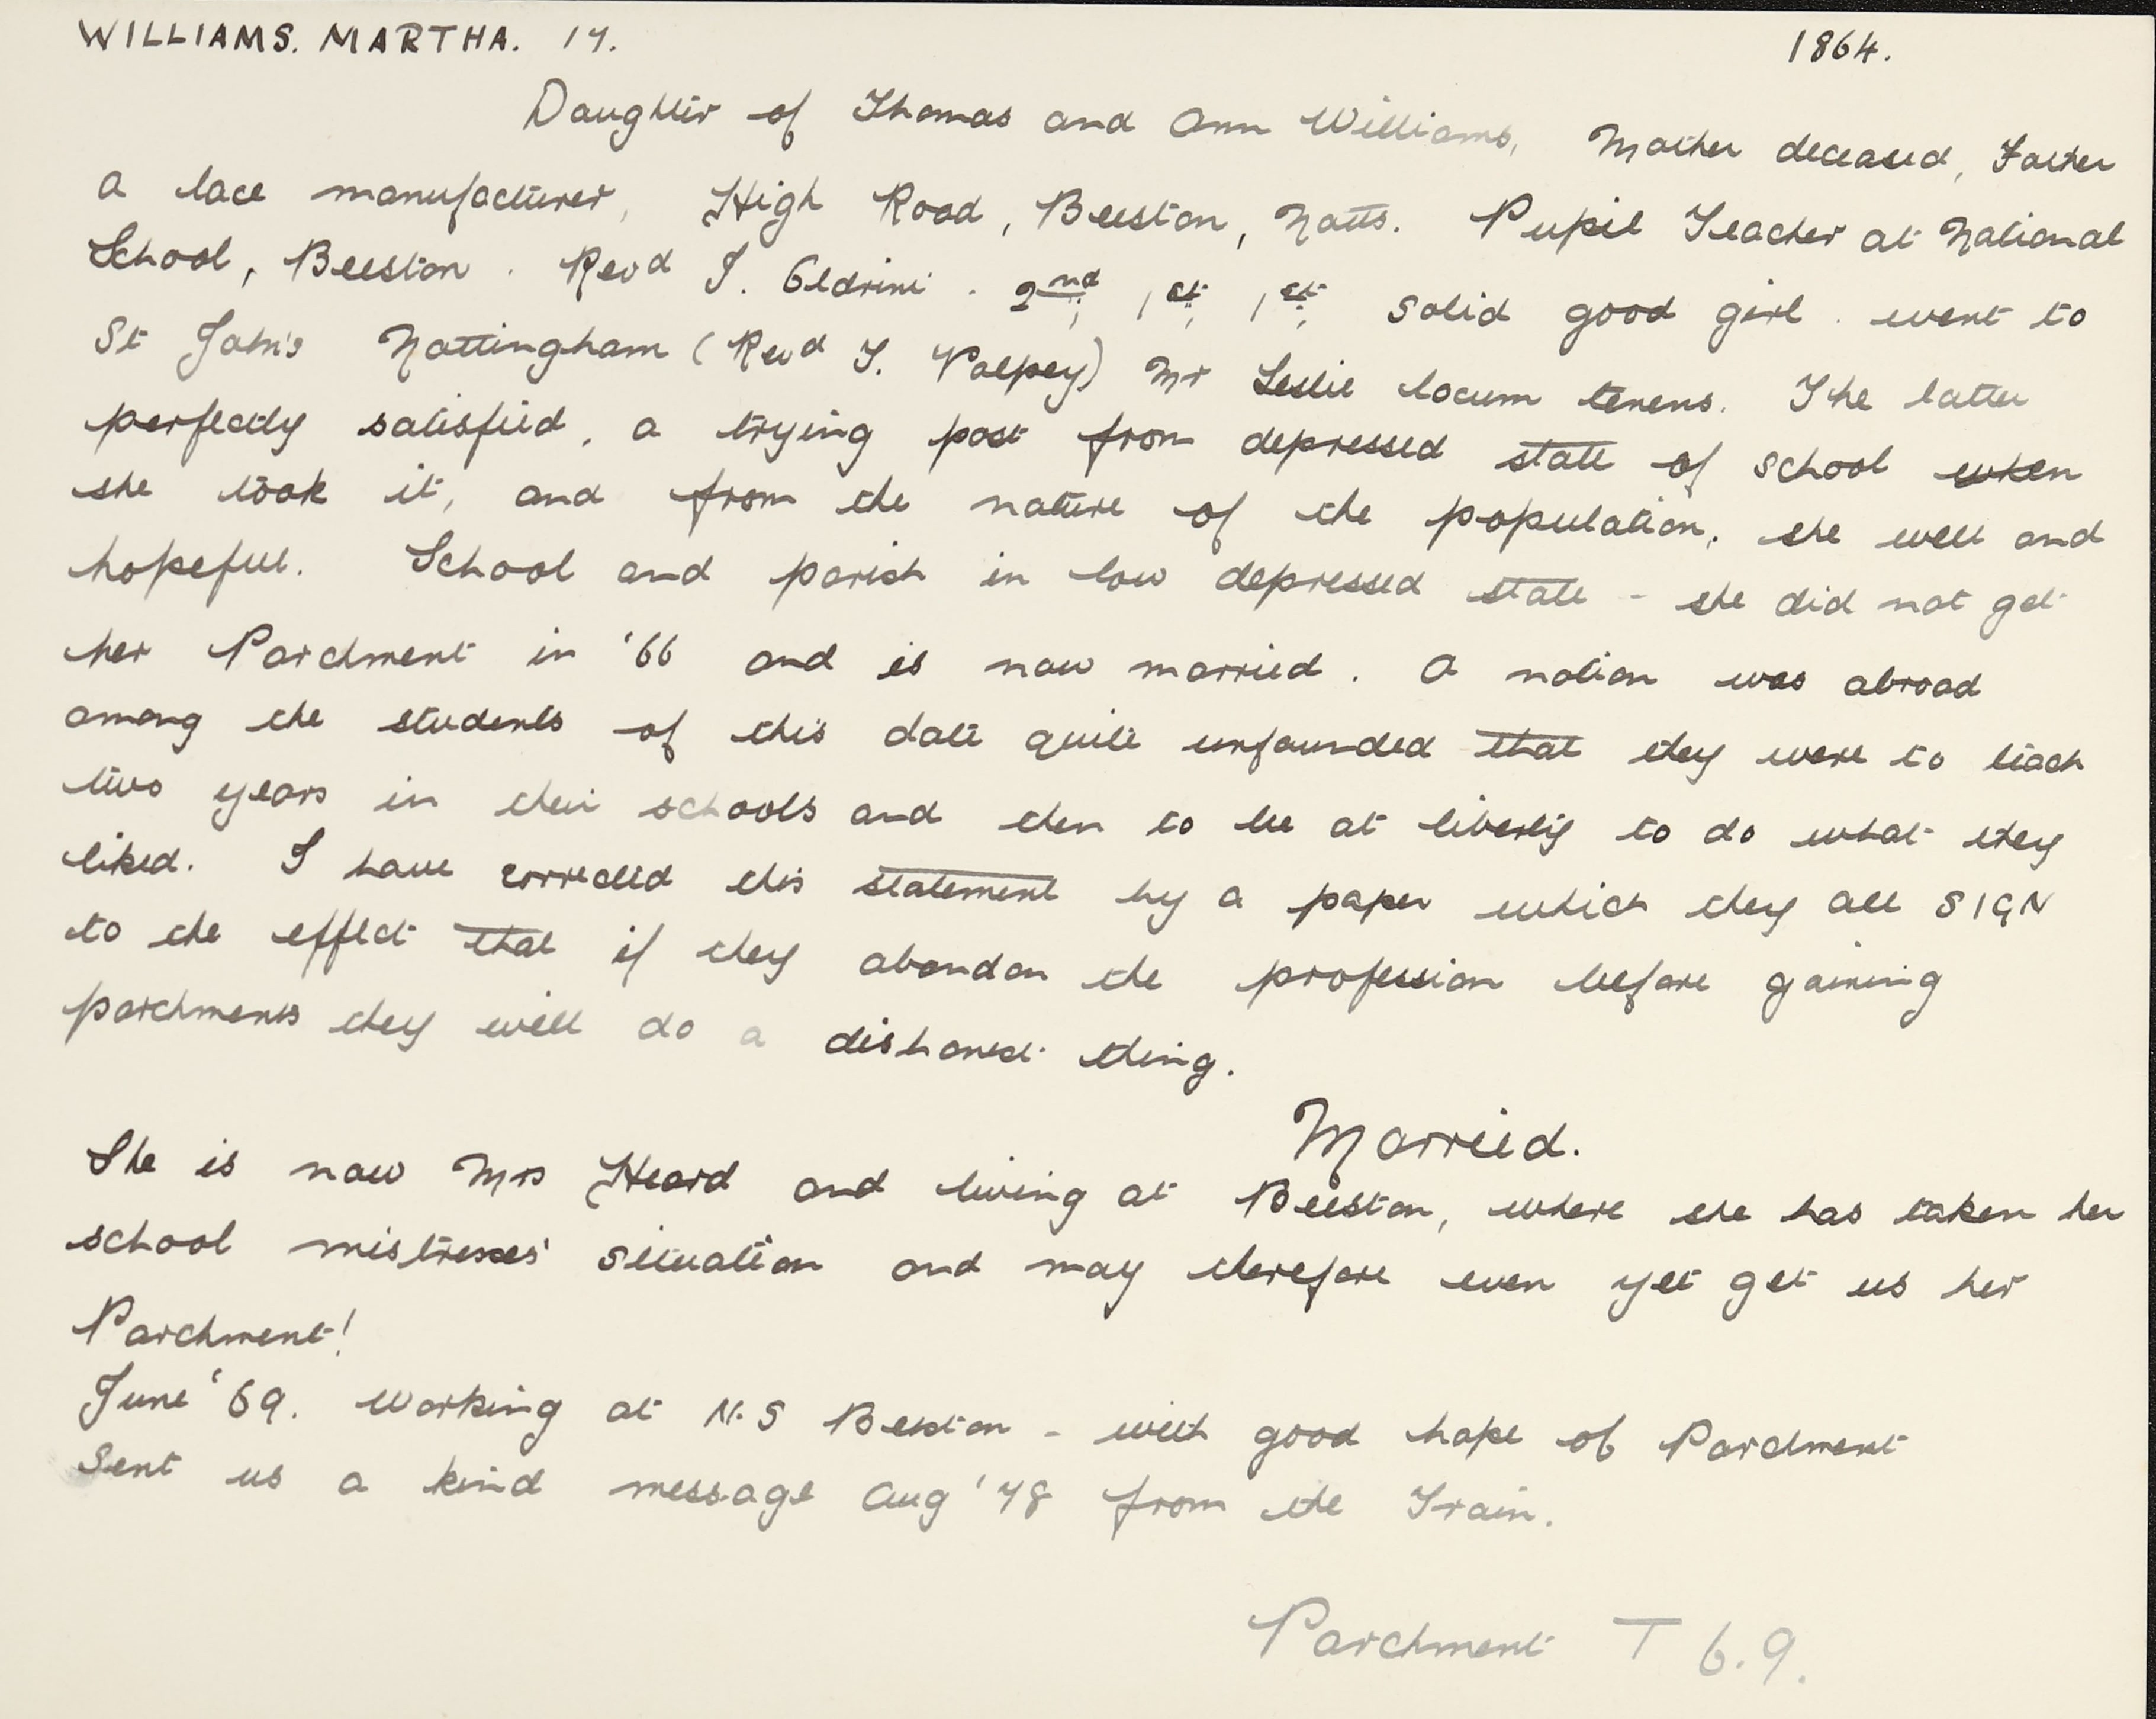 WILLIAMS. MARTHA. 17. 1864.
Daughter of Thomas and Ann Williams, Mother deceased, Father
a lace manufacturer, High Road, Beeston, Notts. Pupil Teacher at National
School, Beeston. Revd J. Oldrini. 2nd, 1st, 1st, Solid good girl. went to
St John's Nottingham (Revd T. Valpey) Mr Leslie locum tenens. The latter
perfectly satisfied, a trying post from depressed state of school when
she took it, and from the nature of the population, she well and
hopeful. School and parish in low depressed state - she did not get
her Parchment in '66 and is now married. A notion was abroad
among the students of this date quite unfounded that they were to teach
two years in their schools and then to be at liberty to do what they
liked. I have corrected this statement by a paper which they all SIGN
to the effect that if they abandon the profession before gaining
parchments they will do a dishonest thing.
Married.
She is now Mrs Heard and living at Beeston, where she has taken her
school mistresses' situation and may therefore even yet get us her
Parchment!
June '69. Working at N.S Beeston - with good hope of Parchment
Sent us a kind message Aug '78 from the Train.
Parchment T 69.